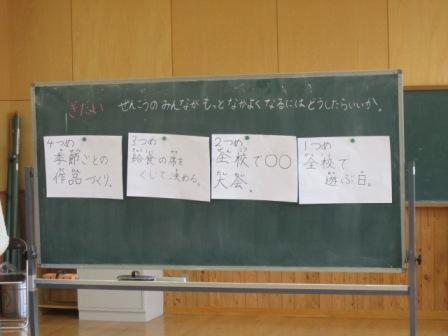 ぎだい ぜんこうのみんながもっとなかよくなるにはどうしたらいいか。
4つめ
季節ごとの
作品づくり。
3つめ
給食の席を
くじで決める。
2つめ
全校で〇〇
大会。
1つめ
全校で
遊ぶ日。